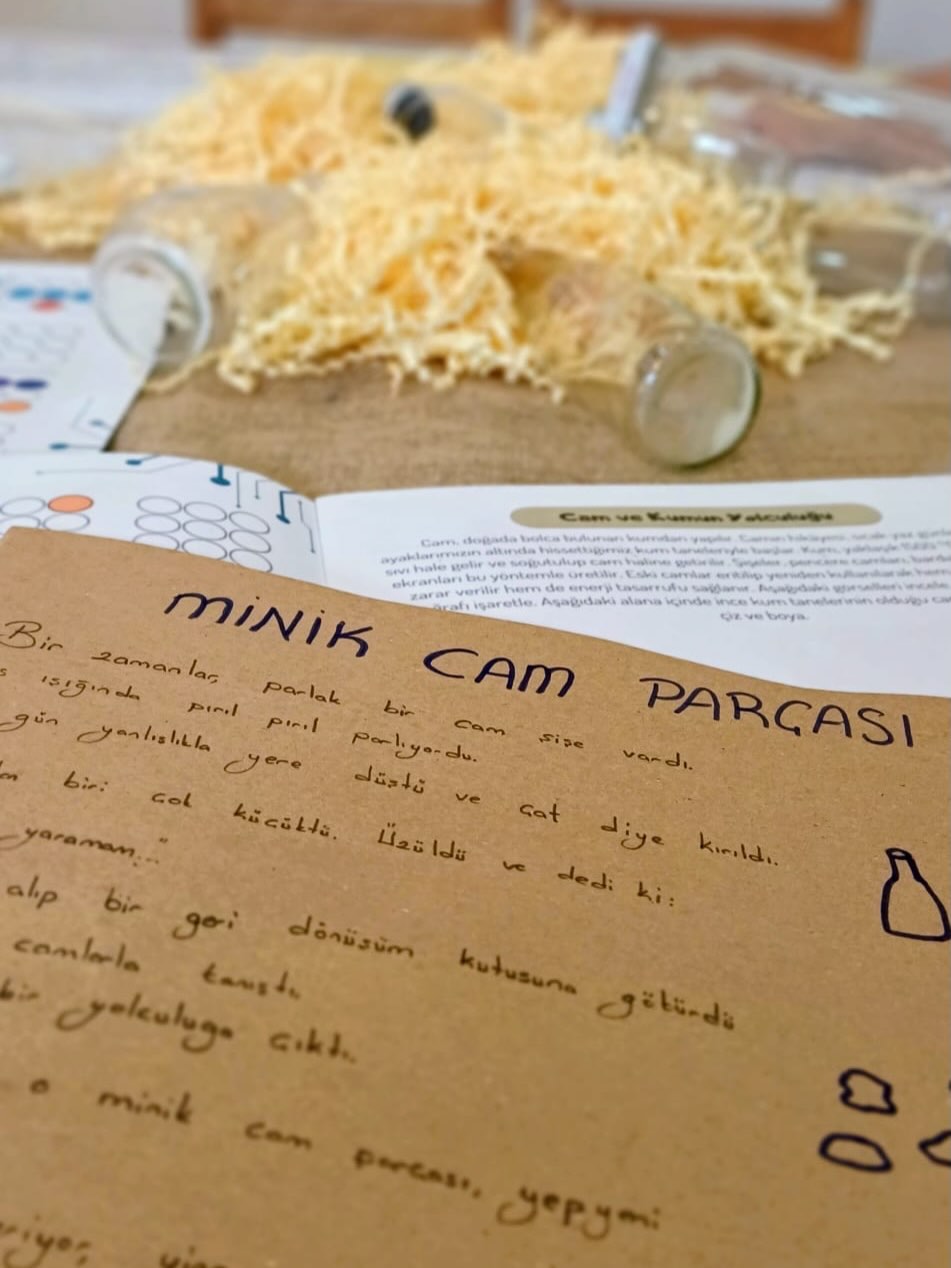 Cam ve Kumun Yolculuğu
Cam, doğada bolca bulunan kumdan yapılır. Camın hikayesi, sıcak yaz
ayaklarımızın altında hissettiğimiz kum taneleriyle başlar. Kum, yaklaşık
sıvı hale gelir ve soğutulup cam haline getirilir. Şişeler, pencere camları,
ekranları bu yöntemle üretilir. Eski camlar eritilip yeniden kullanılarak hem
zarar verilir hem de enerji tasarrufu sağlanır. Aşağıdaki görselleri
işaretle. Aşağıdaki alana içinde ince kum tanelerinin olduğu
çiz ve boya.
MİNİK CAM PARÇASI
Bir zamanlar, parlak bir cam şişe vardı.
ışığında pırıl pırıl parlıyordu.
gün yanlışlıkla yere düştü ve çat diye kırıldı.
biri çok küçüktü. Üzüldü ve dedi ki:
yaramam..."
alıp bir geri dönüşüm kutusuna götürdü
camlarla tanıştı.
bir yolculuğa çıktı.
o minik cam parçası, yepyeni